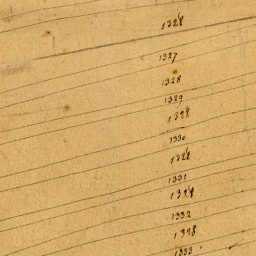 1328
1327
1328
1329
1328
1330
1328
1331
1328
1332
1328
1333